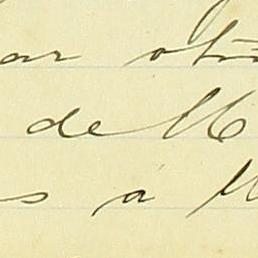 ar otr
de M
s á M